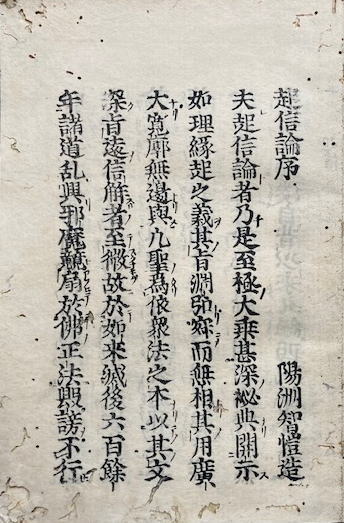 起信論序　　　　　陽洲智愷造
夫起信論者乃是至極大乗甚深祕典開示
如理緣起之義其旨淵弘寂而無相其用廣
大寬廓無邊與凡聖爲依衆法之本以其文
深旨遠信解者至微故於如来滅後六百餘
年諸道乱興邪魔競扇於佛正法毀謗不行